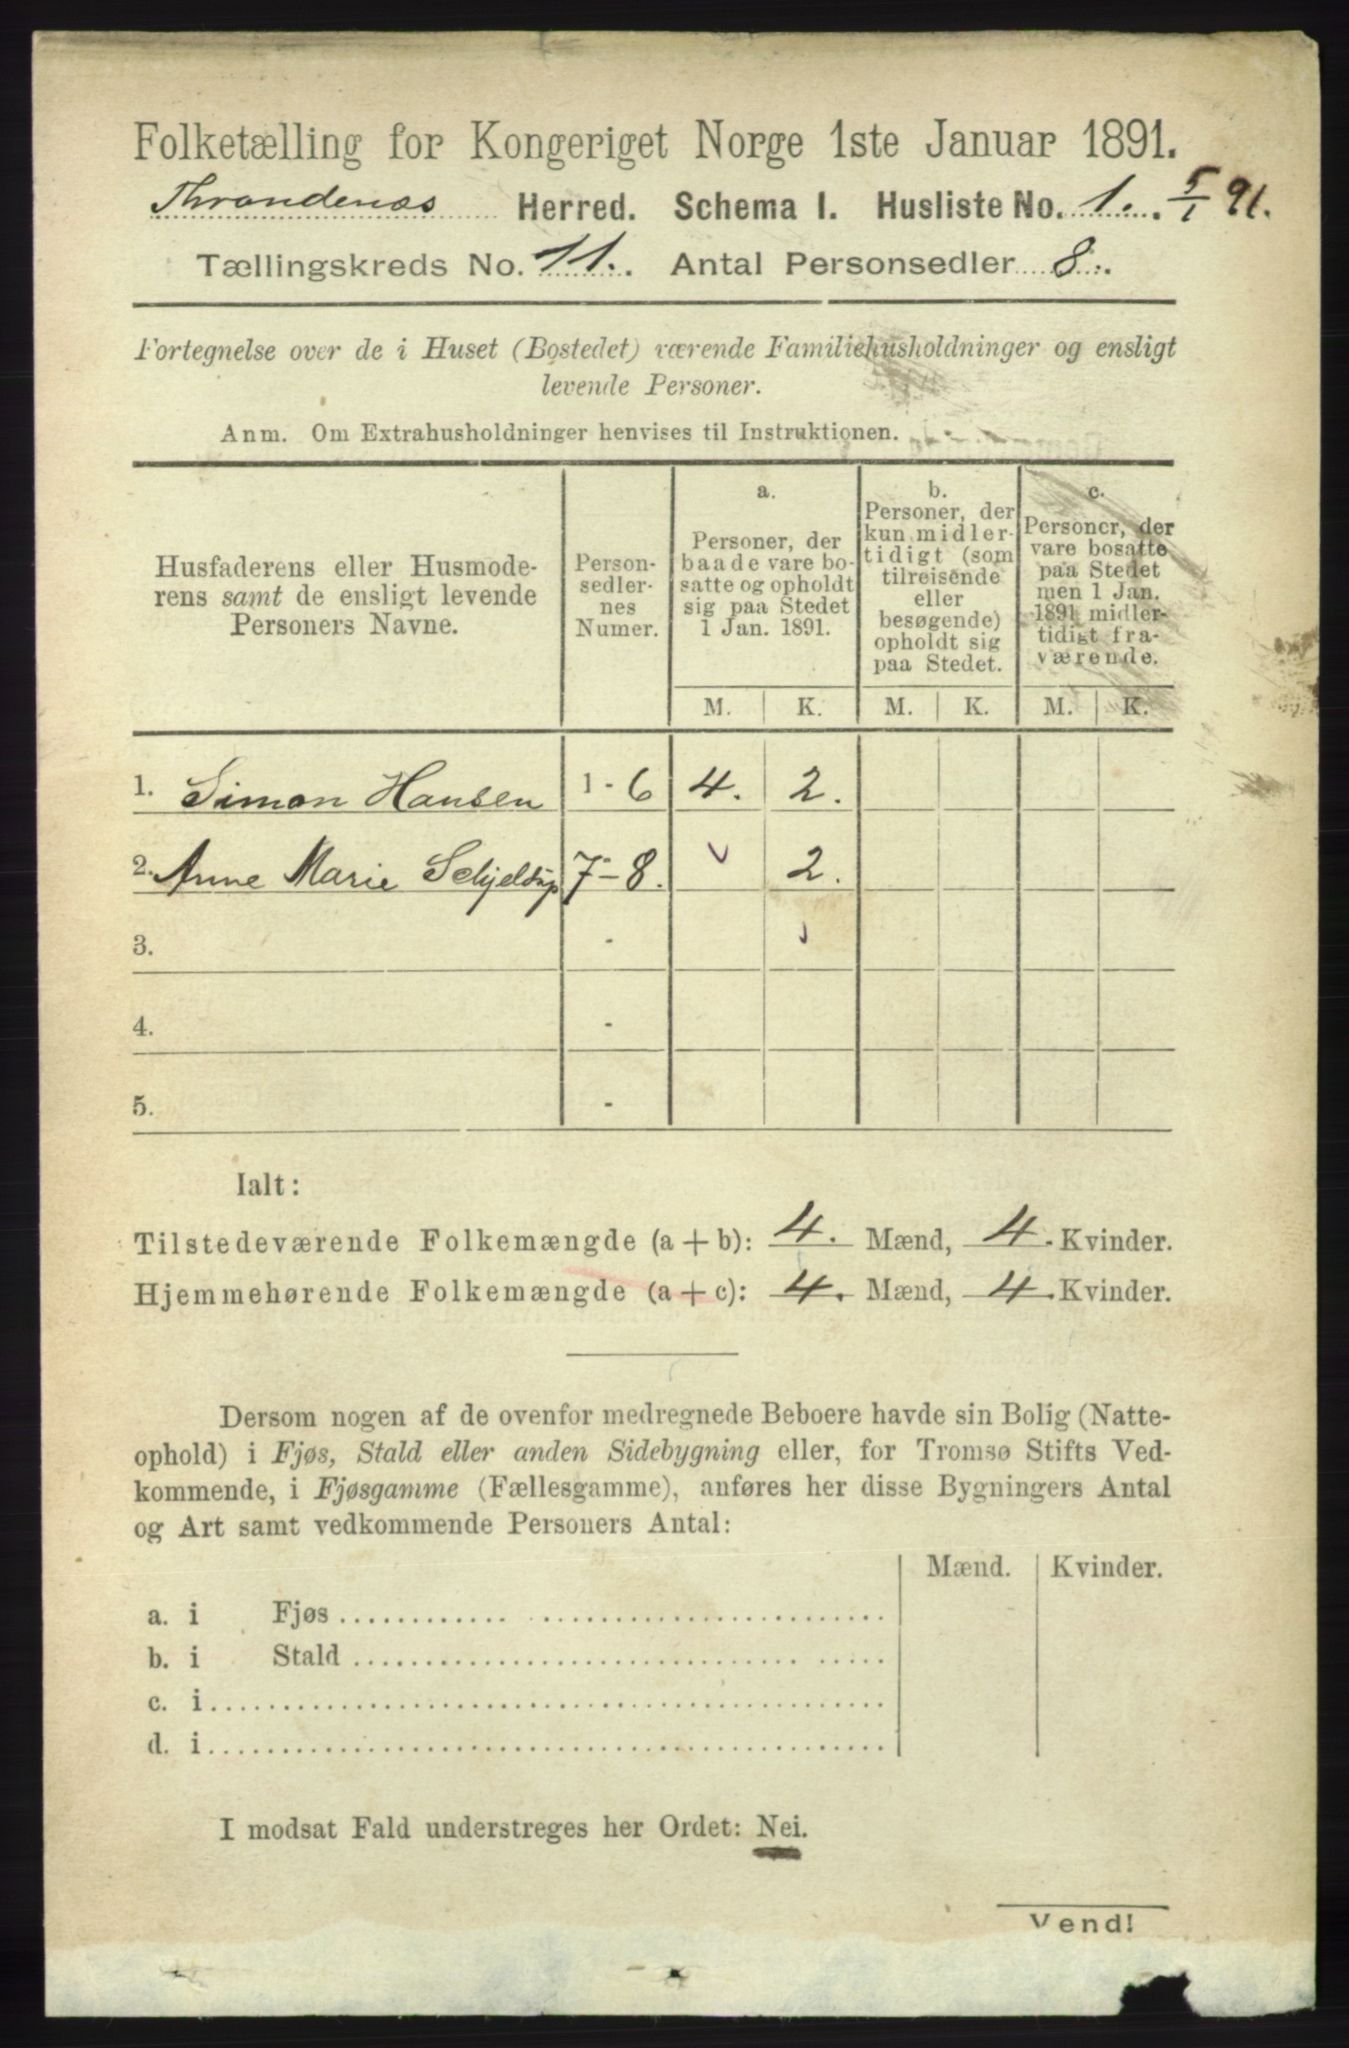 Folketælling for Kongeriget Norge 1ste Januar 1891.
Throndenæs Herred. Schema I. Husliste No. 1. 5/1 91.
Tællingskreds No. 11. Antal Personsedler 8.
Fortegnelse over de i Huset (Bostedet) værende Familiehusholdninger og ensligt
levende Personer.
Anm. Om Extrahusholdninger henvises til Instruktionen.
Husfaderens eller Husmode-
rens samt de ensligt levende
Personers Navne.
Person-
sedler-
nes
Numer.
a.
Personer, der
baade vare bo-
satte og opholdt
sig paa Stedet
1 Jan. 1891.
b.
Personer, der
kun midler-
tidigt (som
tilreisende
eller
besøgende)
opholdt sig
paa Stedet.
c.
Personer, der
vare bosatte
paa Stedet
men 1 Jan.
1891 midler-
tidigt fra-
værende.
M. K. M. K. M. K.
1. Simon Hansen 1 - 6 4. 2.
2. Anne Marie Schjeldrup 7 - 8. 2.
3. -
4. -
5. -
Ialt:
Tilstedeværende Folkemængde (a + b): 4. Mænd, 4. Kvinder.
Hjemmehørende Folkemængde (a + c): 4. Mænd, 4. Kvinder.
Dersom nogen af de ovenfor medregnede Beboere havde sin Bolig (Natte-
ophold) i Fjøs, Stald eller anden Sidebygning eller, for Tromsø Stifts Ved-
kommende, i Fjøsgamme (Fællesgamme), anføres her disse Bygningers Antal
og Art samt vedkommende Personers Antal:
Mænd. Kvinder.
a. i Fjøs
b. i Stald
c. i
d. i
I modsat Fald understreges her Ordet: Nei.
Vend!